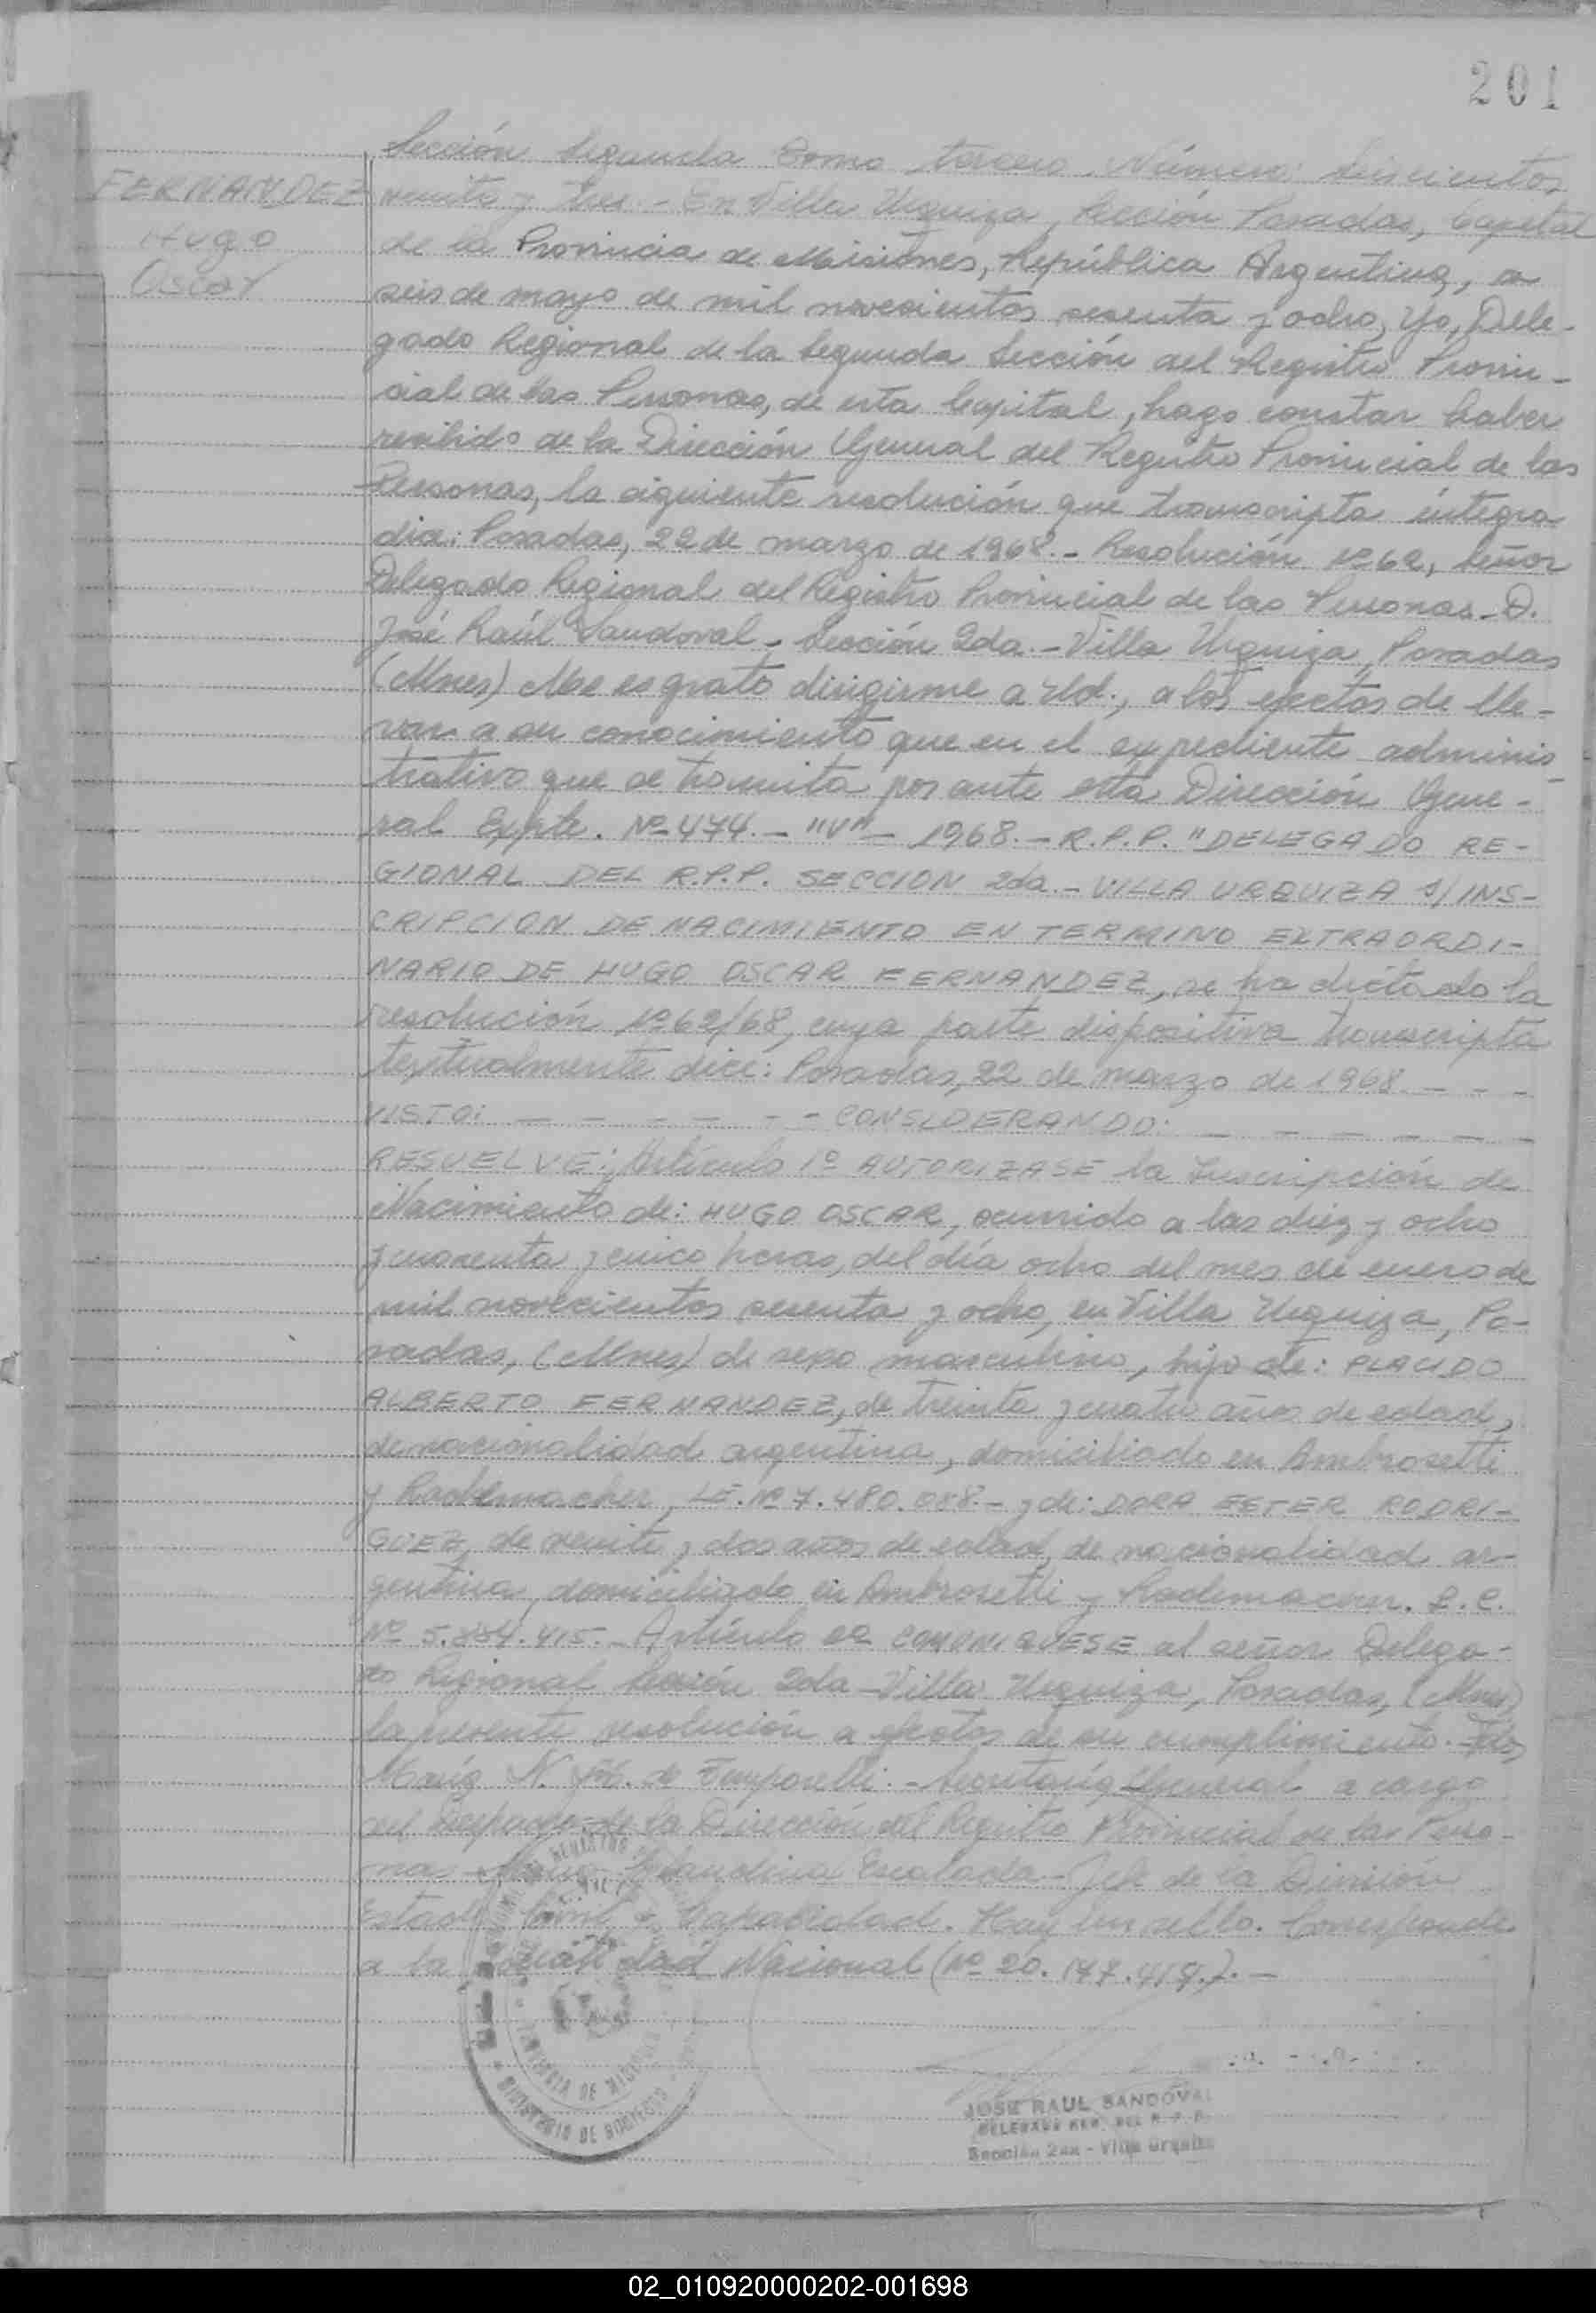 201
FERNANDEZ
Hugo
Oscar
Sección Segunda Tomo tercero. Número: Seiscientos
veinte y tres.- En Villa Urquiza, Sección Posadas, Capital
de la Provincia de Misiones, República Argentina, a
seis de mayo de mil novecientos sesenta y ocho, Yo, Dele-
gado Regional de la Segunda Sección del Registro Provin-
cial de las Personas, de esta Capital, hago constar haber
recibido de la Dirección General del Registro Provincial de las
Personas, la siguiente resolución que transcripta íntegra
dice: Posadas, 22 de marzo de 1968.- Resolución Nº 62, Señor
Delegado Regional del Registro Provincial de las Personas- D.
José Raúl Sandoval - Sección 2da.- Villa Urquiza, Posadas
(Mnes) Me es grato dirigirme a Ud., a los efectos de lle-
var a su conocimiento que en el expediente adminis-
trativo que se tramita por ante esta Dirección Gene-
ral Expte. Nº 474.- "V"- 1968.- R.P.P. "DELEGADO RE-
GIONAL DEL R.P.P. SECCION 2da.- VILLA URQUIZA s/ INS-
CRIPCION DE NACIMIENTO EN TERMINO EXTRAORDI-
NARIO DE HUGO OSCAR FERNANDEZ, se ha dictado la
resolución Nº 62/68, cuya parte dispositiva transcripta
textualmente dice: Posadas, 22 de marzo de 1968 - - -
VISTO: - - - - - - CONSIDERANDO: - - - - - -
RESUELVE: Artículo 1º AUTORIZASE la Inscripción de
Nacimiento de: HUGO OSCAR, ocurrido a las diez y ocho
y cuarenta y cinco horas, del día ocho del mes de enero de
mil novecientos sesenta y ocho, en Villa Urquiza, Po-
sadas, (Mnes) de sexo masculino, hijo de: PLACIDO
ALBERTO FERNANDEZ, de treinta y cuatro años de edad,
de nacionalidad argentina, domiciliado en Ambrosetti
y Rademacher, LE. Nº 7.480.088.- y de: DORA ESTER RODRI-
GUEZ, de veinte y dos años de edad, de nacionalidad ar-
gentina, domiciliada en Ambrosetti y Rademacher. L.C.
Nº 5. .415.- Artículo 2º COMUNIQUESE al señor Delega-
do Regional Sección 2da- Villa Urquiza, Posadas, (Mnes)
la presente resolución a efectos de su cumplimiento. Fdo,
María N. de - Secretaria General a cargo
del Despacho de la Dirección del Registro Provincial de las Perso-
nas - Escalada - Jefe de la División
Estado Civil y Capacidad. Hay un sello. Corresponde
a la Identidad Nacional (Nº 20.147.419.).-
MINISTERIO DE GOBIERNO
PROVINCIA DE MISIONES
JOSE RAUL SANDOVAL
DELEGADO REG. DEL R.P.P.
Sección 2da - Villa Urquiza
02_010920000202-001698